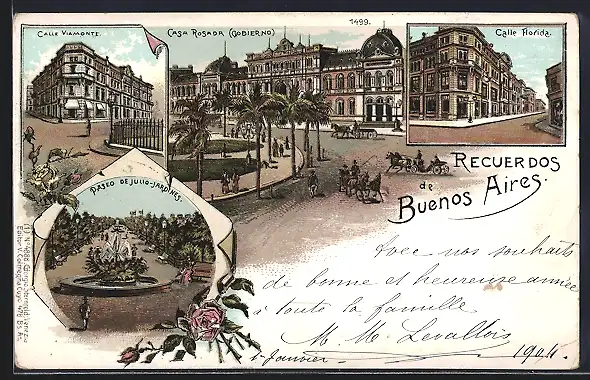 1499.
CALLE VIAMONTE.
CASA ROSADA (GOBIERNO)
Calle Florida.
RECUERDOS
de
Buenos Aires.
PASEO DE JULIO-JARDINES.
Avec nos souhaits
de bonne et heureuse année
à toute la famille
M. M. Levallois
1 Janvier 1904